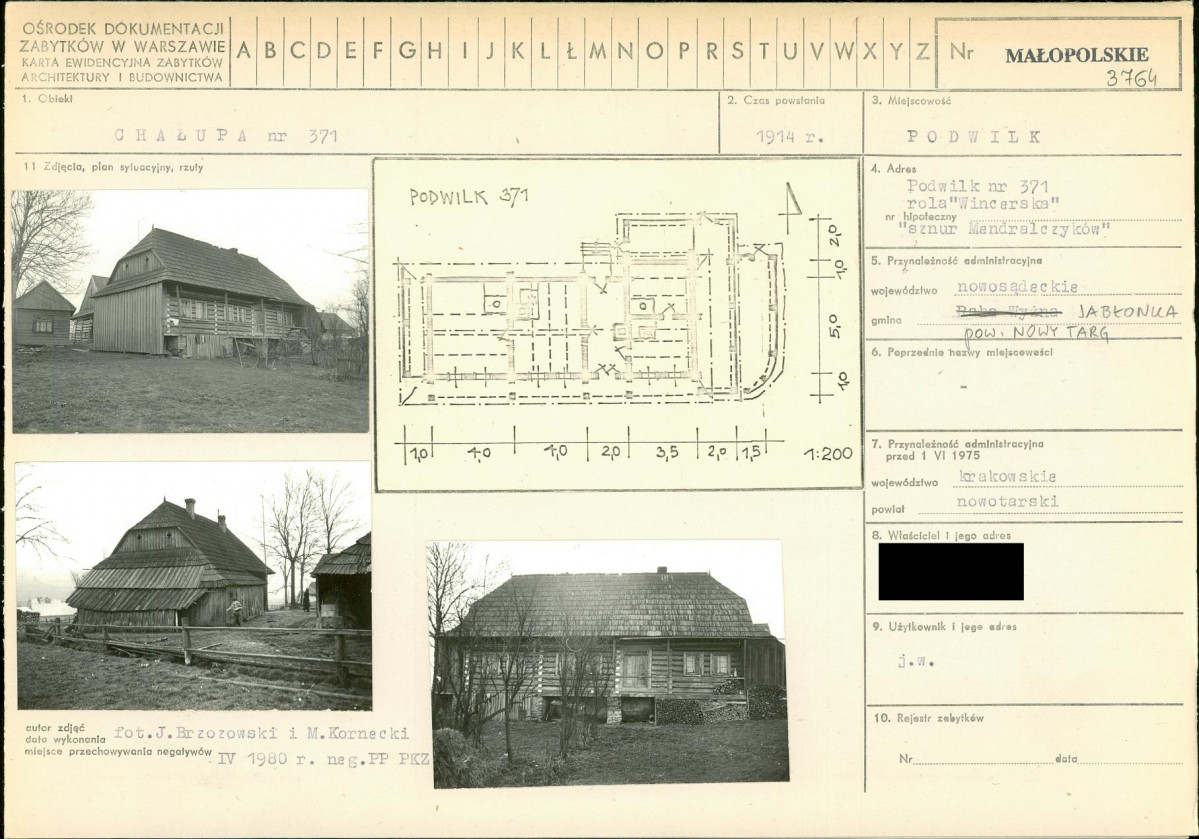 OŚRODEK DOKUMENTACJI
ZABYTKÓW W WARSZAWIE
KARTA EWIDENCYJNA ZABYTKÓW
ARCHITEKTURY I BUDOWNICTWA
A B C D E F G H I J K L Ł M N O P R S T U V W X Y Z
Nr MAŁOPOLSKIE
3764
1. Obiekt
CHAŁUPA nr 371
2. Czas powstania
1914 r.
3. Miejscowość
PODWILK
11 Zdjęcia, plan sytuacyjny, rzuty
PODWILK 371
2,0
1,0
5,0
1,0
1,0 4,0 4,0 2,0 3,5 2,0 1,5 1:200
4. Adres
Podwilk nr 371
rola"Wincerska"
nr hipoteczny
"sznur Mendralczyków"
5. Przynależność administracyjna
województwo nowosądeckie
gmina Raba Wyżna JABŁONKA
pow. NOWY TARG
6. Poprzednie nazwy miejscowości
-
7. Przynależność administracyjna
przed 1 VI 1975
województwo krakowskie
powiat nowotarski
8. Właściciel i jego adres
9. Użytkownik i jego adres
j.w.
10. Rejestr zabytków
Nr data
autor zdjęć
data wykonania fot.J.Brzozowski i M.Kornecki
miejsce przechowywania negatywów IV 1980 r. neg.PP PKZ